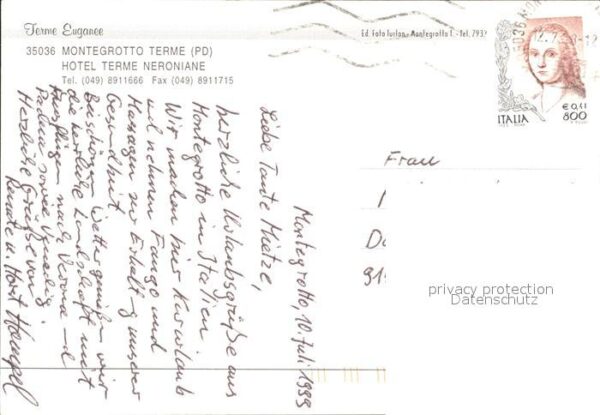 Terme Euganee
35036 MONTEGROTTO TERME (PD)
HOTEL TERME NERONIANE
Tel. (049) 8911666 Fax (049) 8911715
Ed. Foto Turlon - Montegrotto T. - tel. 793
ITALIA
€ 0,41
800
Montegrotto, 10. Juli 1999
Liebe Tante Mietze,
herzliche Urlaubsgrüße aus
Montegrotto in Italien
Wir machen hier Kururlaub
und nehmen Fango und
Massagen zur Erhaltung unserer
Gesundheit.
Bei schönem Wetter genießen wir
die herrliche Landschaft mit
Ausflügen nach Verona
Padua sowie Venedig.
Herzliche Grüße von
Renate u. Horst Hampel
Frau
91
privacy protection
Datenschutz